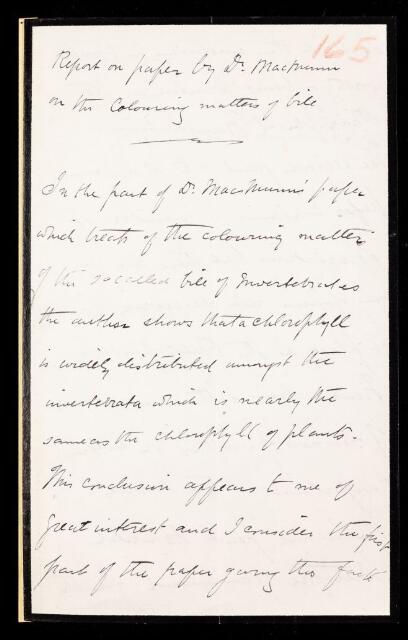 165
Report on paper by Dr. MacMunn
on the Colouring matters of bile
In the part of Dr. MacMunn's paper
which treats of the colouring matter
of the so called bile of Invertebrates
the author shows that a chlorophyll
is widely distributed amongst the
invertebrata which is nearly the
same as the chlorophyll of plants.
This conclusion appears to me of
great interest and I consider the first
part of the paper giving the facts